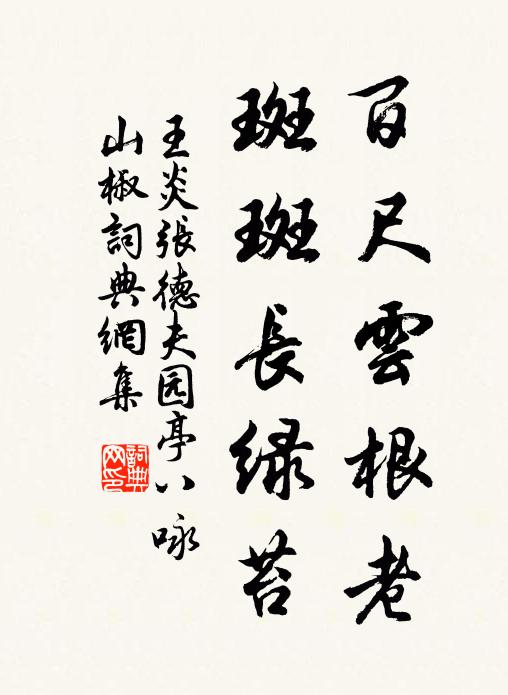 百尺雲根老
斑斑長緑苔
王炎張德夫园亭八咏
山椒詞典網集
詞典网印